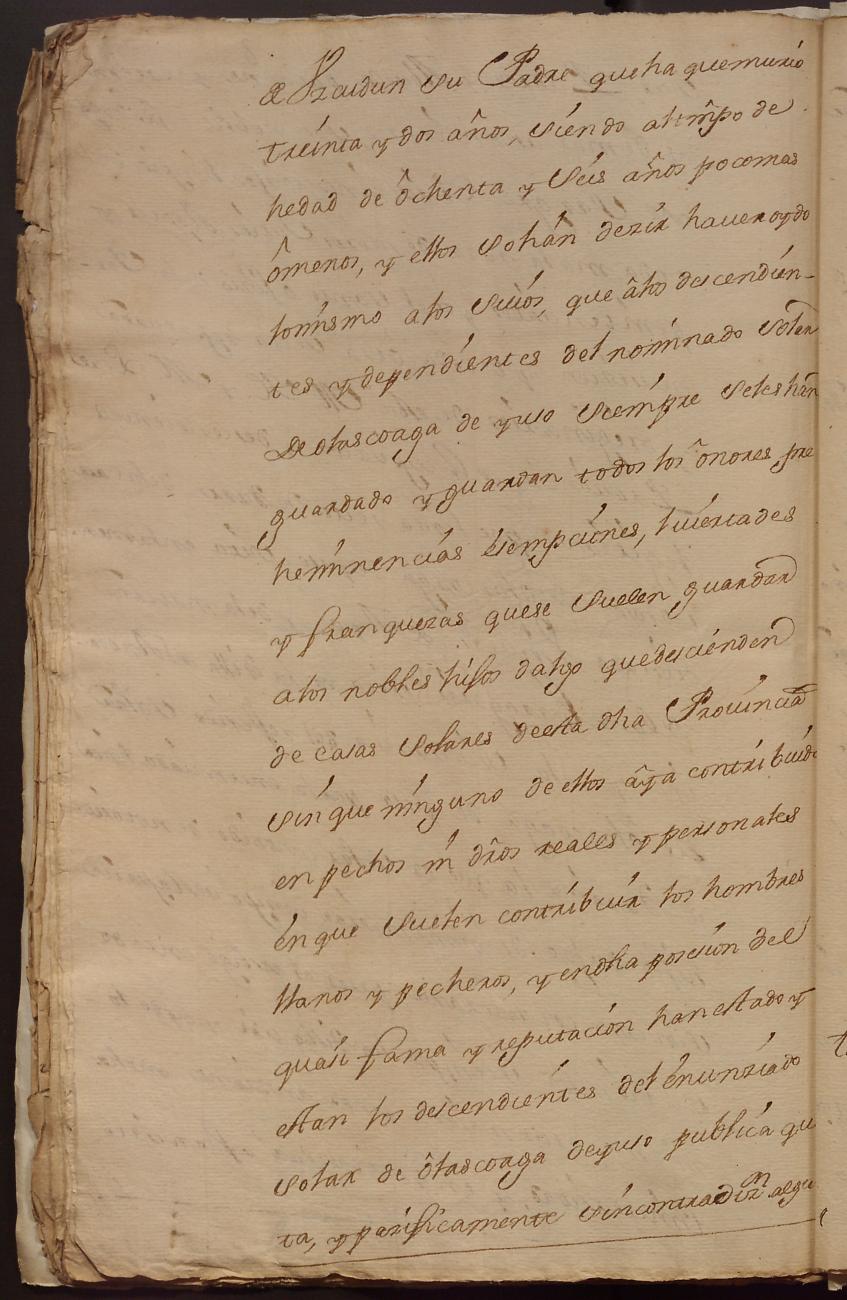 de Yzaidun su Padre que ha que murio
treinta y dos años, siendo al tmpo de
hedad de ôchenta y seis años poco mas
ômenos, y ellos solian dezir haver oydo
lomismo alos suios, que âlos descendien-
tes y dependientes del nominado Solar
de olascoaga de yuso siempre seles han
guardado y guardan todos los onores pre
heminencias esempciones, livertades
y franquezas quese suelen guardar
alos nobles hijos dalgo que descienden
de casas Solares deesta dha Provincia
sin que ninguno de ellos aya contribuido
en pechos ni dros reales y personales
en que suelen contribuir los hombres
llanos y pecheros, y endha posesion vel
quasi fama y reputacion han estado y
estan los descendientes del enunziado
solar de ôlascoaga deyuso publica qui
ta, y pazificamente sin contradizon algu